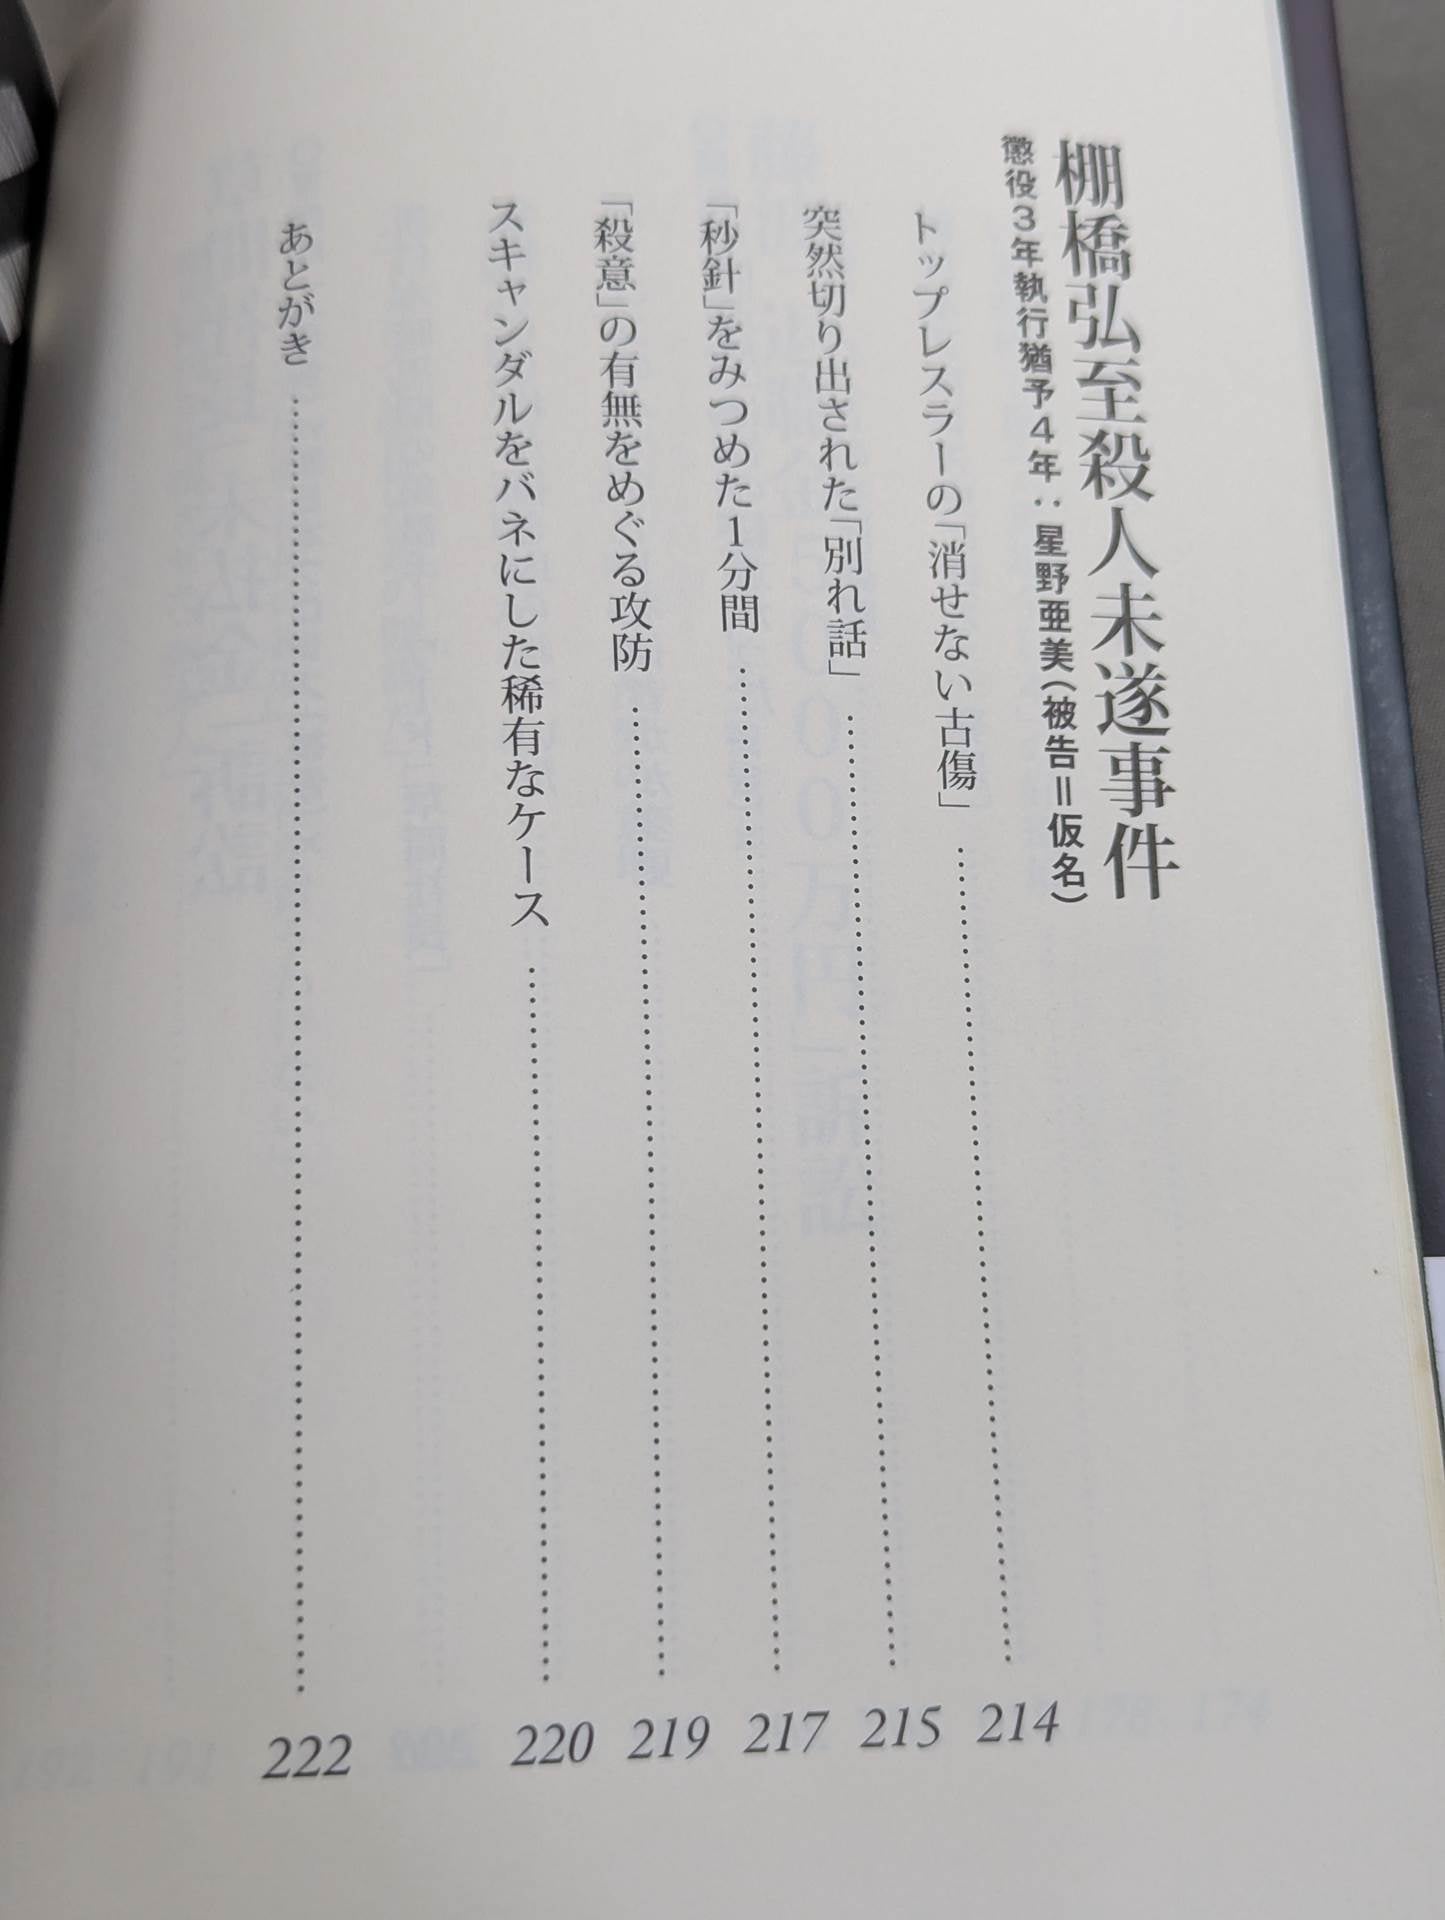 棚橋弘至殺人未遂事件
懲役3年執行猶予4年：星野亜美（被告＝仮名）
トップレスラーの「消せない古傷」……………………214
突然切り出された「別れ話」……………………215
「秒針」をみつめた1分間……………………217
「殺意」の有無をめぐる攻防……………………219
スキャンダルをバネにした稀有なケース……………………220
あとがき……………………222